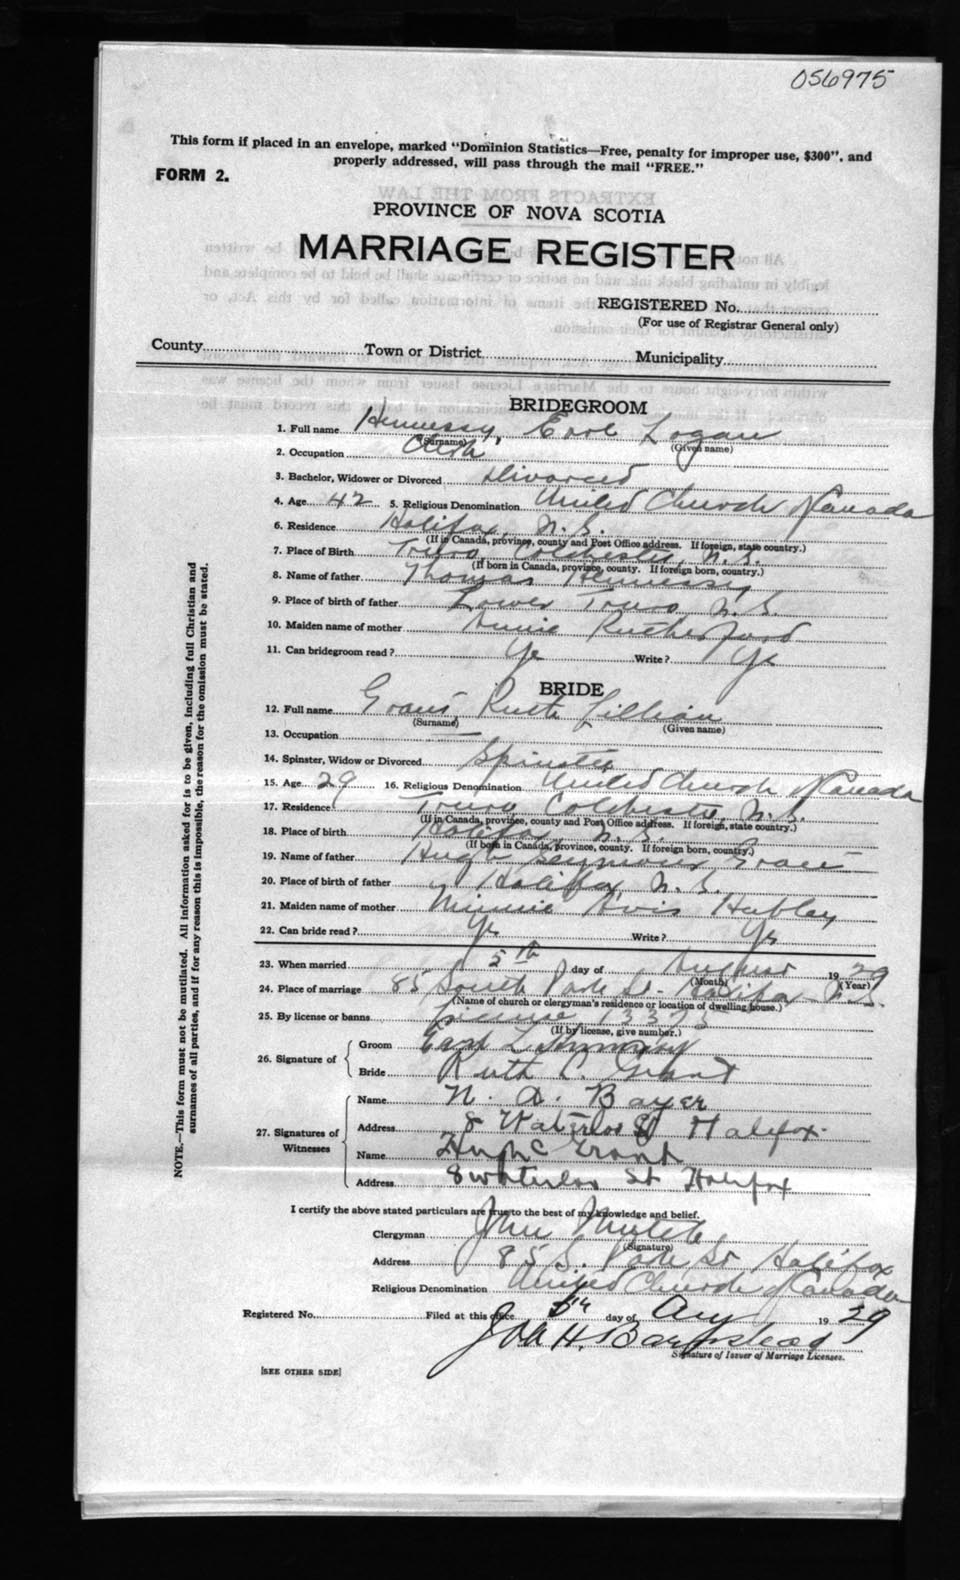 056975
This form if placed in an envelope, marked "Dominion Statistics—Free, penalty for improper use, $300", and
properly addressed, will pass through the mail "FREE."
FORM 2.
PROVINCE OF NOVA SCOTIA
MARRIAGE REGISTER
REGISTERED No.
(For use of Registrar General only)
County Town or District Municipality
BRIDEGROOM
1. Full name Hennessy, Earl Logan
(Surname) (Given name)
2. Occupation Clerk
3. Bachelor, Widower or Divorced Divorced
4. Age 42 5. Religious Denomination United Church of Canada
6. Residence Halifax, N.S.
(If in Canada, province, county and Post Office address. If foreign, state country.)
7. Place of Birth Truro, Colchester, N.S.
(If born in Canada, province, county. If foreign born, country.)
8. Name of father Thomas Hennessy
9. Place of birth of father Lower Truro N.S.
10. Maiden name of mother Annie Rutherford
11. Can bridegroom read? Yes Write? Yes
BRIDE
12. Full name Grant Ruth Lillian
(Surname) (Given name)
13. Occupation —
14. Spinster, Widow or Divorced Spinster
15. Age 29 16. Religious Denomination United Church of Canada
17. Residence Truro Colchester, N.S.
(If in Canada, province, county and Post Office address. If foreign, state country.)
18. Place of birth Halifax, N.S.
(If born in Canada, province, county. If foreign born, country.)
19. Name of father Hugh Seymour Grant
20. Place of birth of father Halifax, N.S.
21. Maiden name of mother Minnie Avis Hubley
22. Can bride read? Yes Write? Yes
23. When married 5th day of August 1929
(Month) (Year)
24. Place of marriage 85 South Park St. Halifax N.S.
(Name of church or clergyman's residence or location of dwelling house.)
25. By license or banns License 13375
(If by license, give number.)
26. Signature of Groom Earl L. Hennessy
Bride Ruth L. Grant
27. Signatures of Witnesses Name N. A. Bayer
Address 8 Waterloo St Halifax
Name Hugh C Grant
Address 8 Waterloo St Halifax
I certify the above stated particulars are true to the best of my knowledge and belief.
Clergyman John
(Signature)
Address 85 S. Park St Halifax
Religious Denomination United Church of Canada
Registered No. Filed at this office 5th day of Aug 1929
Jon H. Barnstead
Signature of Issuer of Marriage Licenses.
[SEE OTHER SIDE]
NOTE.—This form must not be mutilated. All information asked for is to be given, including full Christian and
surnames of all parties, and if for any reason this is impossible, the reason for the omission must be stated.